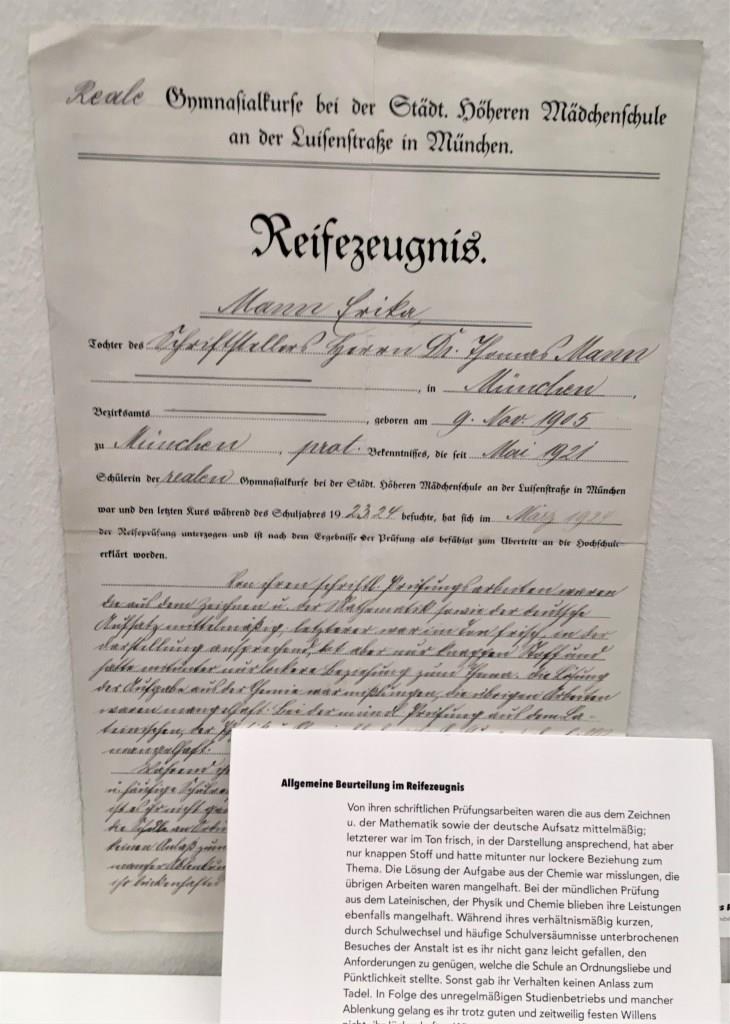 Reale Gymnasialkurse bei der Städt. Höheren Mädchenschule
an der Luisenstraße in München.
Reifezeugnis.
Mann Erika,
Tochter des Schriftstellers Herrn Dr. Thomas Mann
, in München,
Bezirksamts , geboren am 9. Nov. 1905
zu München, prot. Bekenntnisses, die seit Mai 1921
Schülerin der realen Gymnasialkurse bei der Städt. Höheren Mädchenschule an der Luisenstraße in München
war und den letzten Kurs während des Schuljahres 1923.24 besuchte, hat sich im März 1924
der Reifeprüfung unterzogen und ist nach dem Ergebnisse der Prüfung als befähigt zum Übertritt an die Hochschule
erklärt worden.
Von ihren schriftl. Prüfungsarbeiten waren
die aus dem Zeichnen u. der Mathematik sowie der deutsche
Aufsatz mittelmäßig; letzterer war im Ton frisch, in der
Darstellung ansprechend, hat aber nur knappen Stoff und
hatte mitunter nur lockere Beziehung zum Thema. Die Lösung
der Aufgabe aus der Chemie war misslungen, die übrigen Arbeiten
waren mangelhaft. Bei der mündl. Prüfung aus dem La-
teinischen, der
mangelhaft.
Während
u. häufige
ist es ihr nicht
die Schule an
keinen Anlaß zum
mancher Ablenkung
ihr lückenhaftes
Allgemeine Beurteilung im Reifezeugnis
Von ihren schriftlichen Prüfungsarbeiten waren die aus dem Zeichnen
u. der Mathematik sowie der deutsche Aufsatz mittelmäßig;
letzterer war im Ton frisch, in der Darstellung ansprechend, hat aber
nur knappen Stoff und hatte mitunter nur lockere Beziehung zum
Thema. Die Lösung der Aufgabe aus der Chemie war misslungen, die
übrigen Arbeiten waren mangelhaft. Bei der mündlichen Prüfung
aus dem Lateinischen, der Physik und Chemie blieben ihre Leistungen
ebenfalls mangelhaft. Während ihres verhältnismäßig kurzen,
durch Schulwechsel und häufige Schulversäumnisse unterbrochenen
Besuches der Anstalt ist es ihr nicht ganz leicht gefallen, den
Anforderungen zu genügen, welche die Schule an Ordnungsliebe und
Pünktlichkeit stellte. Sonst gab ihr Verhalten keinen Anlass zum
Tadel. In Folge des unregelmäßigen Studienbetriebs und mancher
Ablenkung gelang es ihr trotz guten und zeitweilig festen Willens